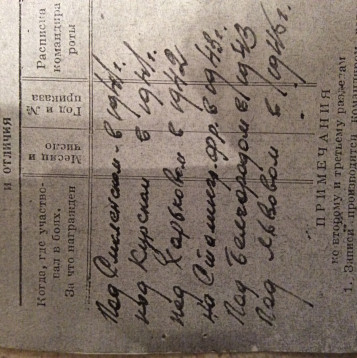 и отличия
Когда, где участво-
вал в боях.
За что награжден
Месяц и
число
Год и №
приказа
Расписка
командира
роты
Под Смоленском в 1941г.
под Курском в 1941г.
под Харьковом в 1942
на Сталингр. фр. в 1943г.
Под Белгородом в 1943
Под Львовом в 1945г.
ПРИМЕЧАНИЯ
ко второму и третьему разделам
1. Записи производятся